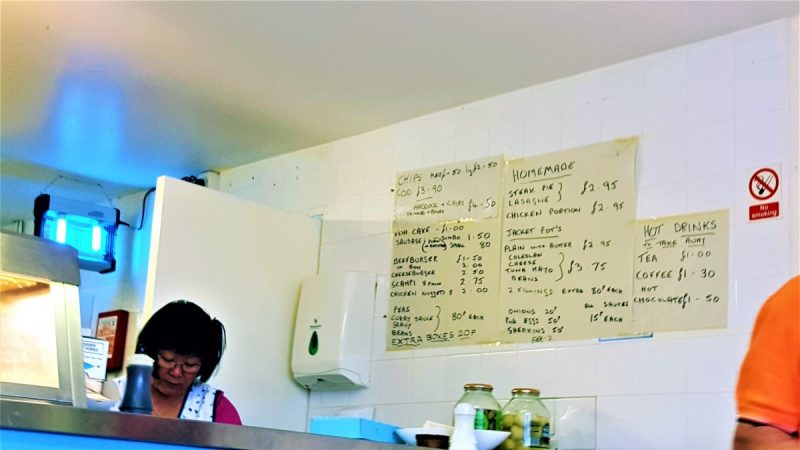 CHIPS MED £1-50 LG £2-50
COD £3-90
HADDOCK + CHIPS £4-50
FISH CAKE - £1-00
SAUSAGE PLAIN JUMBO 1-50
SMALL 80
BEEFBURGER £1-50
IN BUN 2 00
CHEESEBURGER 2 50
SCAMPI 8 2-75
CHICKEN NUGGETS 5 2-00
PEAS
CURRY SAUCE
GRAVY
BEANS
80P EACH
EXTRA BOXES 20P
HOMEMADE
STEAK PIE
LASAGNE
£2.95
CHICKEN PORTION £2.95
JACKET POT'S
PLAIN WITH BUTTER £2-95
COLESLAW
CHEESE
TUNA MAYO
BEANS
£3.75
2 FILLINGS EXTRA 80P EACH
ONIONS 20P
EGGS 50P
GHERKINS 50P
ALL SAUCES
15P EACH
HOT DRINKS
TO TAKE AWAY
TEA £1-00
COFFEE £1-30
HOT
CHOCOLATE £1-50
No
smoking